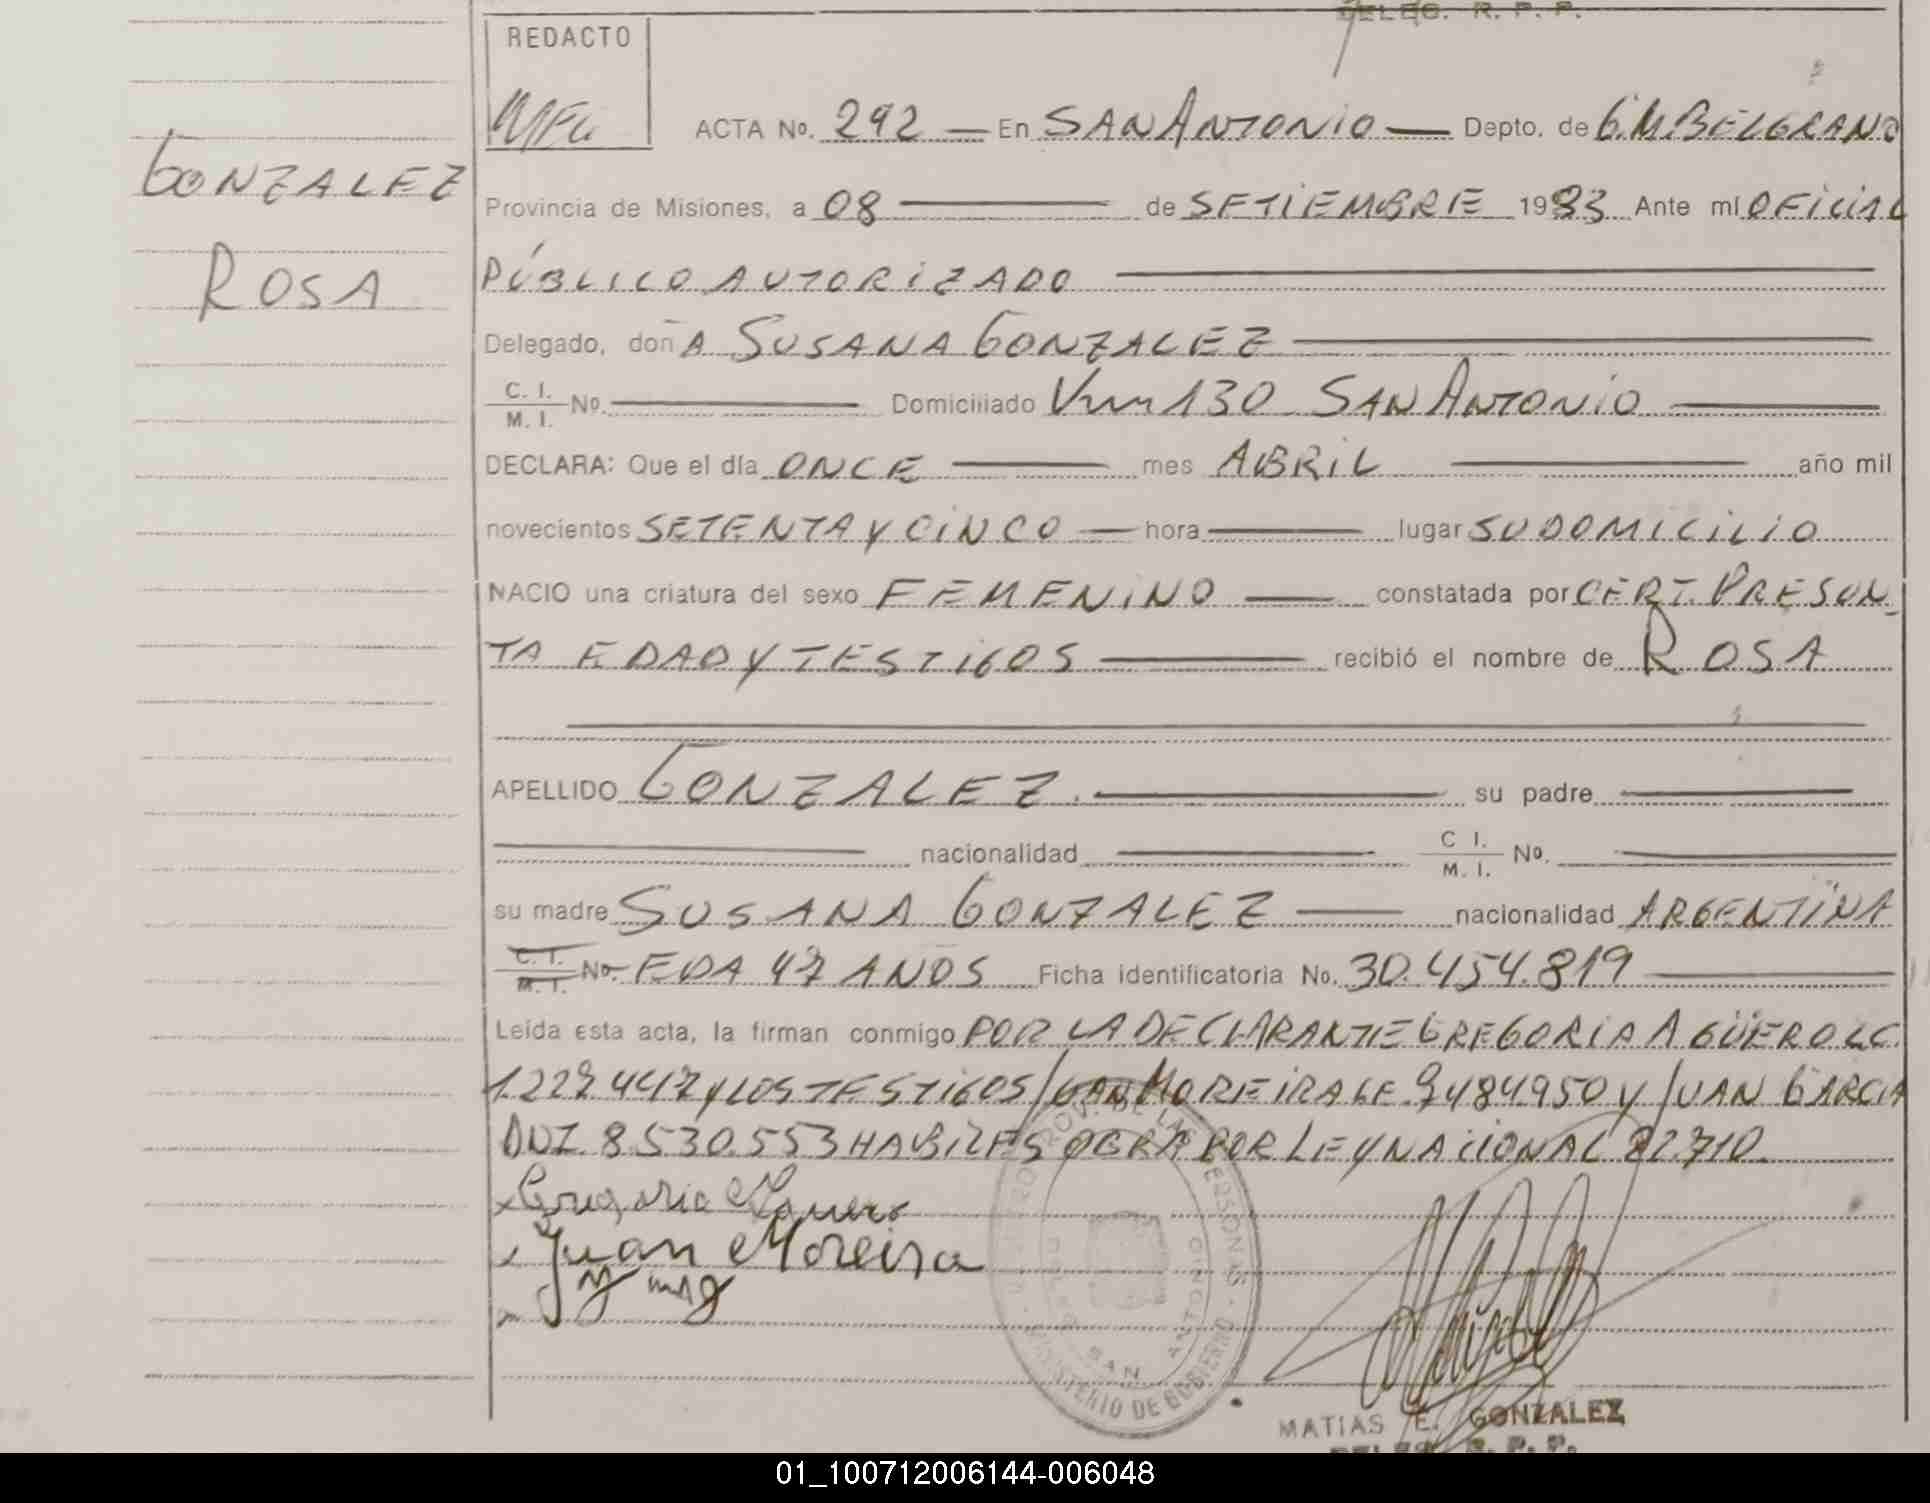 DELEG. R. P. P.
REDACTO
ACTA No. 292 — En SAN ANTONIO — Depto. de G.M.BELGRANO
GONZALEZ
ROSA
Provincia de Misiones, a 08 — de SETIEMBRE 1983 Ante mí OFICIAL
PÚBLICO AUTORIZADO —
Delegado, doñA SUSANA GONZALEZ —
C. I.
M. I. No. — Domiciliado Km 130 SAN ANTONIO —
DECLARA: Que el día ONCE — mes ABRIL — año mil
novecientos SETENTA Y CINCO — hora — lugar SU DOMICILIO
NACIO una criatura del sexo FEMENINO — constatada por CERT. PRESUN-
TA EDAD Y TESTIGOS — recibió el nombre de ROSA
APELLIDO GONZALEZ. — su padre —
— nacionalidad — C I.
M. I. No. —
su madre SUSANA GONZALEZ — nacionalidad ARGENTINA
C. I.
M. I. No. EDA 47 AÑOS Ficha identificatoria No. 30.454.819 —
Leída esta acta, la firman conmigo POR LA DECLARANTE GREGORIA AGÜERO LC.
1.227.447 y LOS TESTIGOS JUAN MOREIRA LE 7484950 Y JUAN GARCIA
DNI. 8.530.553 HABILES OBRA POR LEY NACIONAL 22.710.
x Gregoria Aguero
x Juan Moreira
PROV. DE LAS PERSONAS
SAN ANTONIO
MINISTERIO DE GOBIERNO
MATIAS E. GONZALEZ
DELEG. R. P. P.
01_100712006144-006048